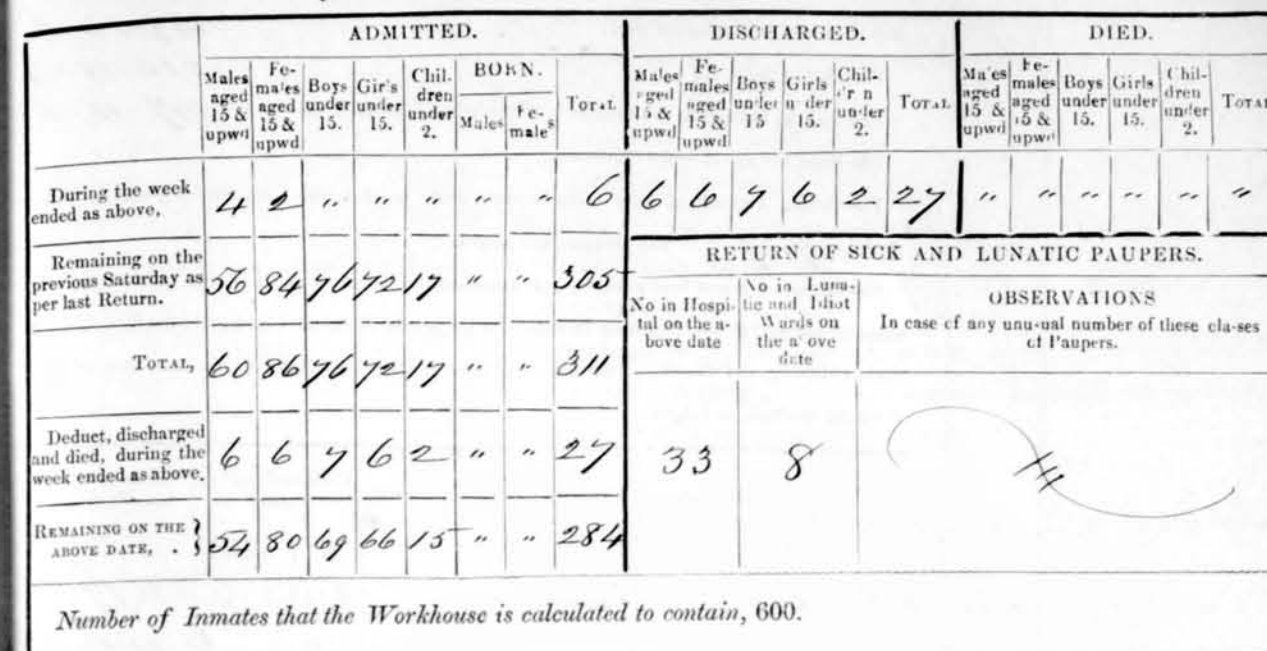 ADMITTED. DISCHARGED. DIED.
Males aged 15 & upwd
Fe-males aged 15 & upwd
Boys under 15.
Gir's under 15.
Chil. dren under 2.
BORN.
Males
Fe-males
TOTAL
Males aged 15 & upwd
Fe-males aged 15 & upwd
Boys under 15
Girls under 15.
Chil-dr n under 2.
TOTAL
Ma'es aged 15 & upwd
Fe-males aged 15 & upwd
Boys under 15.
Girls under 15.
Chil-dren under 2.
TOTAL
During the week ended as above, 4 2 " " " " " 6 6 6 7 6 2 27 " " " " " "
Remaining on the previous Saturday as per last Return. 56 84 76 72 17 " " 305
TOTAL, 60 86 76 72 17 " " 311
Deduct, discharged and died, during the week ended as above. 6 6 7 6 2 " " 27
REMAINING ON THE ABOVE DATE, . } 54 80 69 66 15 " " 284
RETURN OF SICK AND LUNATIC PAUPERS.
No in Hospi-tal on the a-bove date
No in Luna-tic and Idiot Wards on the a ove date
OBSERVATIONS
In case of any unu-ual number of these cla-ses
of Paupers.
33 8
Number of Inmates that the Workhouse is calculated to contain, 600.